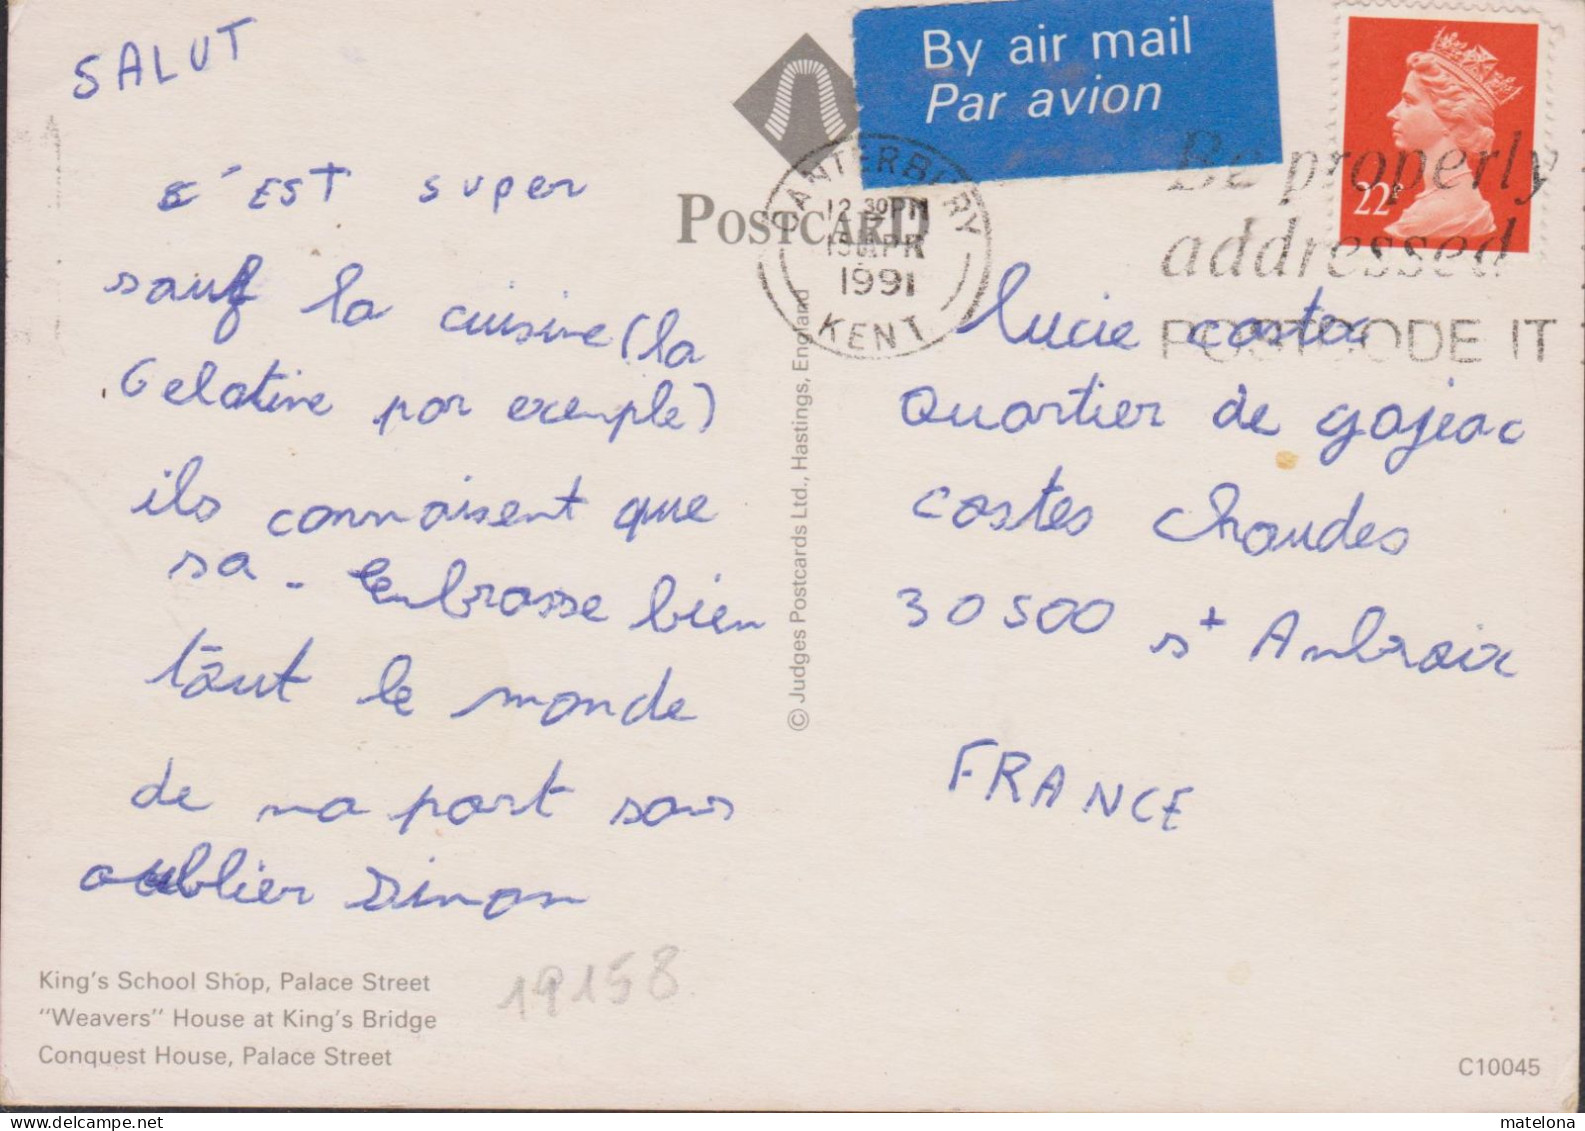 SALUT
c'EST super
sauf la cuisine (la
Gelatine par exemple)
ils connaisent que
sa - embrasse bien
tout le monde
de ma part sans
oublier simon
King's School Shop, Palace Street
"Weavers" House at King's Bridge
Conquest House, Palace Street
19158
POSTCARD
© Judges Postcards Ltd., Hastings, England
By air mail
Par avion
CANTERBURY
12 30 PM
15 APR
1991
KENT
22P
Be properly
addressed
POSTCODE IT
Lucie costa
Quartier de gajeac
costes chaudes
30500 st Ambroix
FRANCE
C10045
matelona